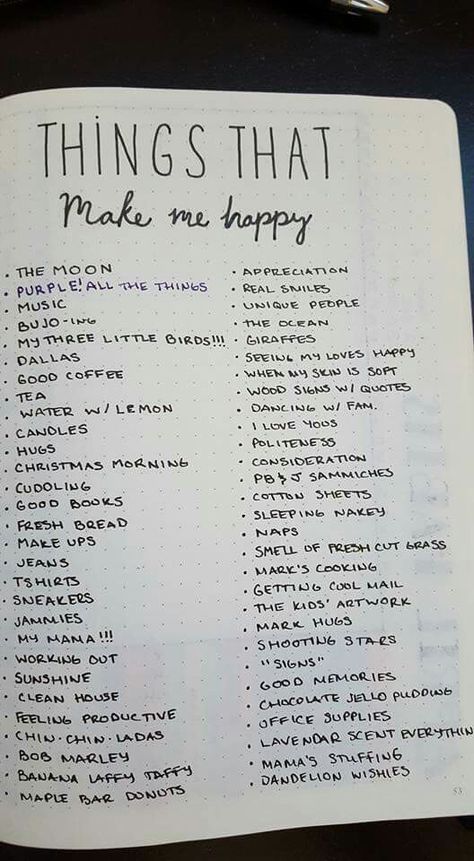 THINGS THAT
Make me happy
• THE MOON
• PURPLE! ALL THE THINGS
• MUSIC
• BUJO-ING
• MY THREE LITTLE BIRDS!!!
• DALLAS
• GOOD COFFEE
• TEA
• WATER W/ LEMON
• CANDLES
• HUGS
• CHRISTMAS MORNING
• CUDDLING
• GOOD BOOKS
• FRESH BREAD
• MAKE UPS
• JEANS
• TSHIRTS
• SNEAKERS
• JAMMIES
• MY MAMA!!!
• WORKING OUT
• SUNSHINE
• CLEAN HOUSE
• FEELING PRODUCTIVE
• CHIN·CHIN·LADAS
• BOB MARLEY
• BANANA LAFFY TAFFY
• MAPLE BAR DONUTS
• APPRECIATION
• REAL SMILES
• UNIQUE PEOPLE
• THE OCEAN
• GIRAFFES
• SEEING MY LOVES HAPPY
• WHEN MY SKIN IS SOFT
• WOOD SIGNS W/ QUOTES
• DANCING W/ FAM.
• I LOVE YOUS
• POLITENESS
• CONSIDERATION
• PB&J SAMMICHES
• COTTON SHEETS
• SLEEPING NAKEY
• NAPS
• SMELL OF FRESH CUT GRASS
• MARK'S COOKING
• GETTING COOL MAIL
• THE KIDS' ARTWORK
• MARK HUGS
• SHOOTING STARS
• "SIGNS"
• GOOD MEMORIES
• CHOCOLATE JELLO PUDDING
• OFFICE SUPPLIES
• LAVENDAR SCENT EVERYTHIN
• MAMA'S STUFFING
• DANDELION WISHIES
53